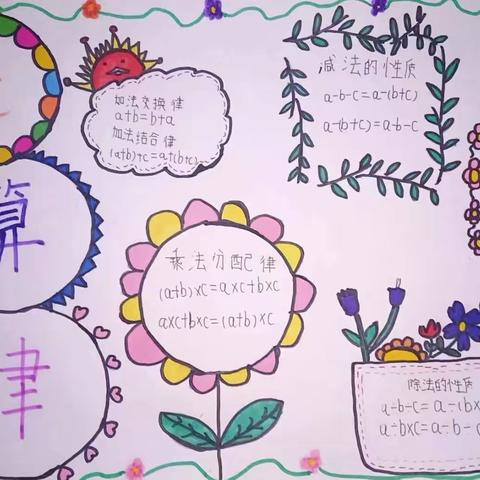 加法交换律
a+b=b+a
加法结合律
(a+b)+c=a+(b+c)
减法的性质
a-b-c=a-(b+c)
a-(b+c)=a-b-c
算
律
乘法分配律
(a+b)×c=a×c+b×c
a×c+b×c=(a+b)×c
除法的性质
a÷b÷c=a÷(b×
a÷b×c=a÷b÷